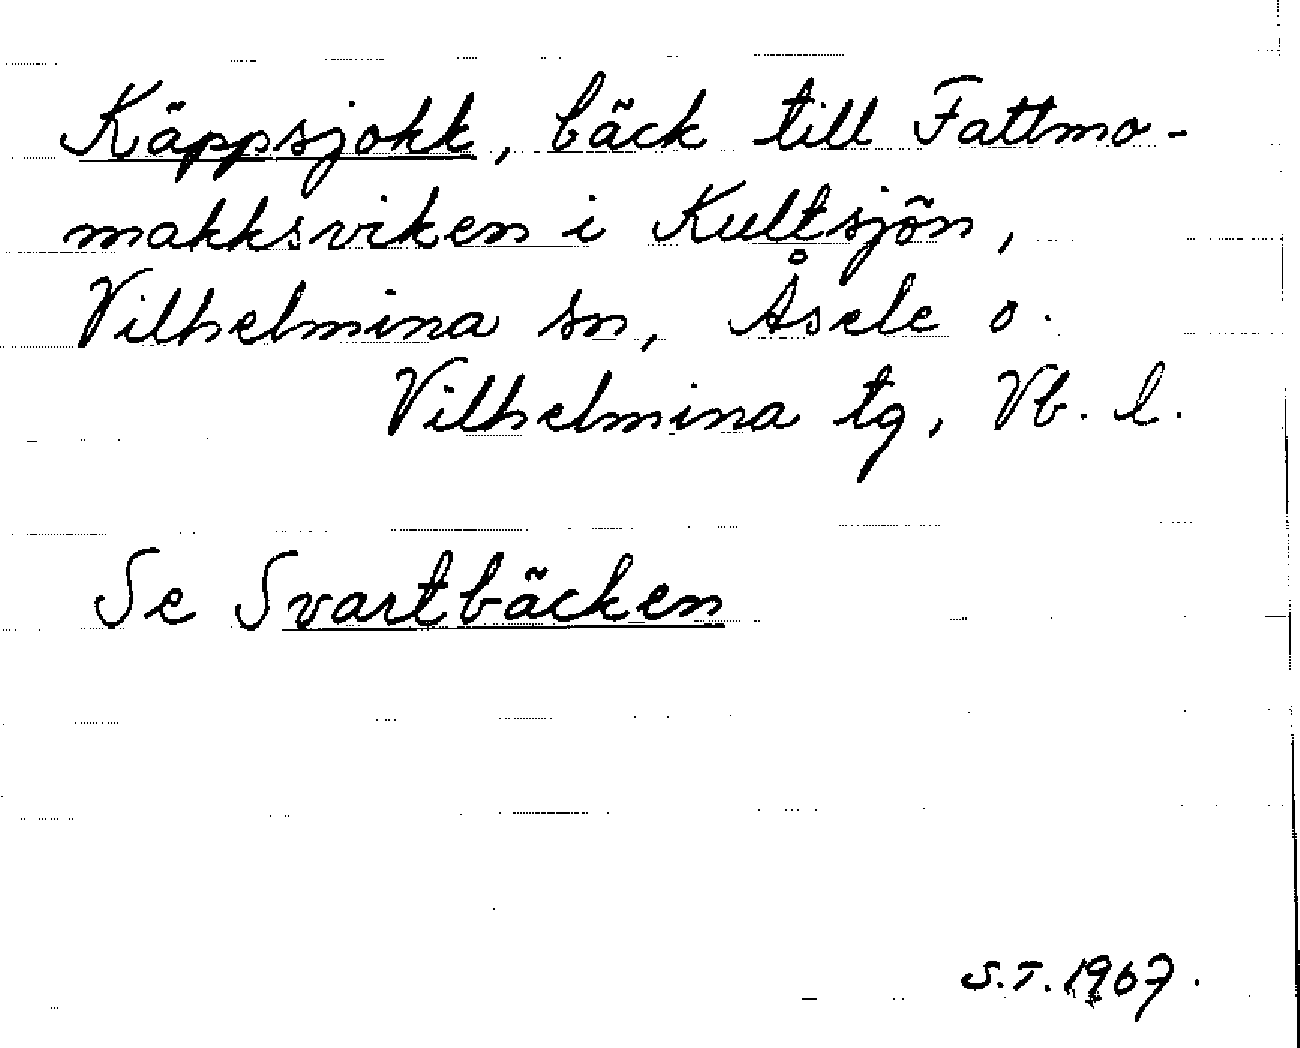 Käppsjokk, bäck till Fattmo-
makksviken i Kultsjön,
Vilhelmina sn, Åsele o.
Vilhelmina tg, Vb. l.
Se Svartbäcken
S.T. 1967.